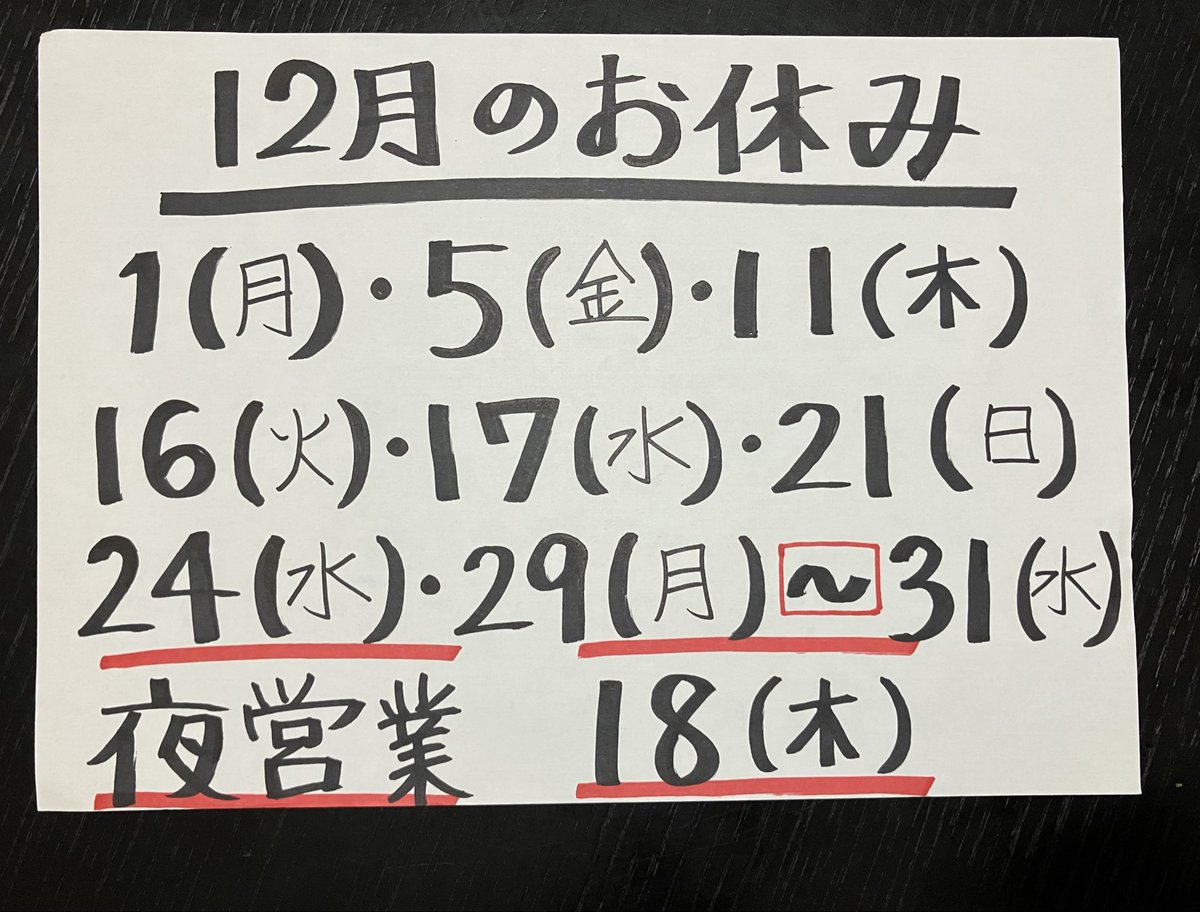 12月のお休み
1(月)・5(金)・11(木)
16(火)・17(水)・21(日)
24(水)・29(月)~31(水)
夜営業 18(木)